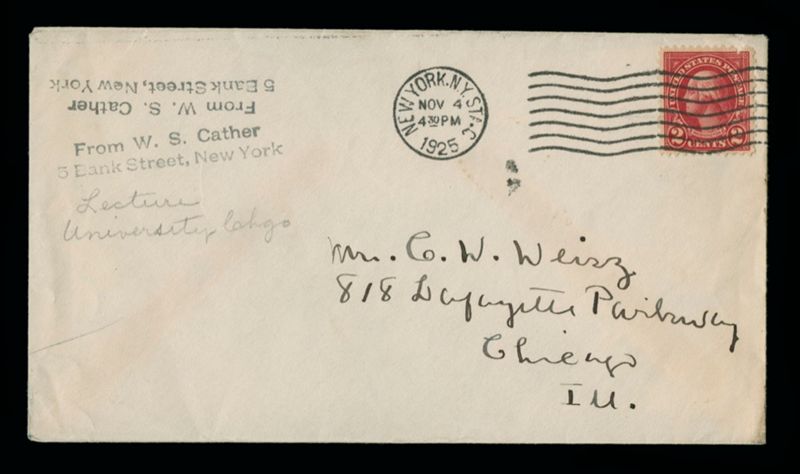 5 Bank Street, New York
From W. S. Cather
From W. S. Cather
5 Bank Street, New York
Lecture
University, Chgo
NEW YORK, N.Y. STA. C
NOV 4
4 30 PM
1925
UNITED STATES POSTAGE
2 CENTS 2
Mr. C. W. Weisz
818 Lafayette Parkway
Chicago
Ill.